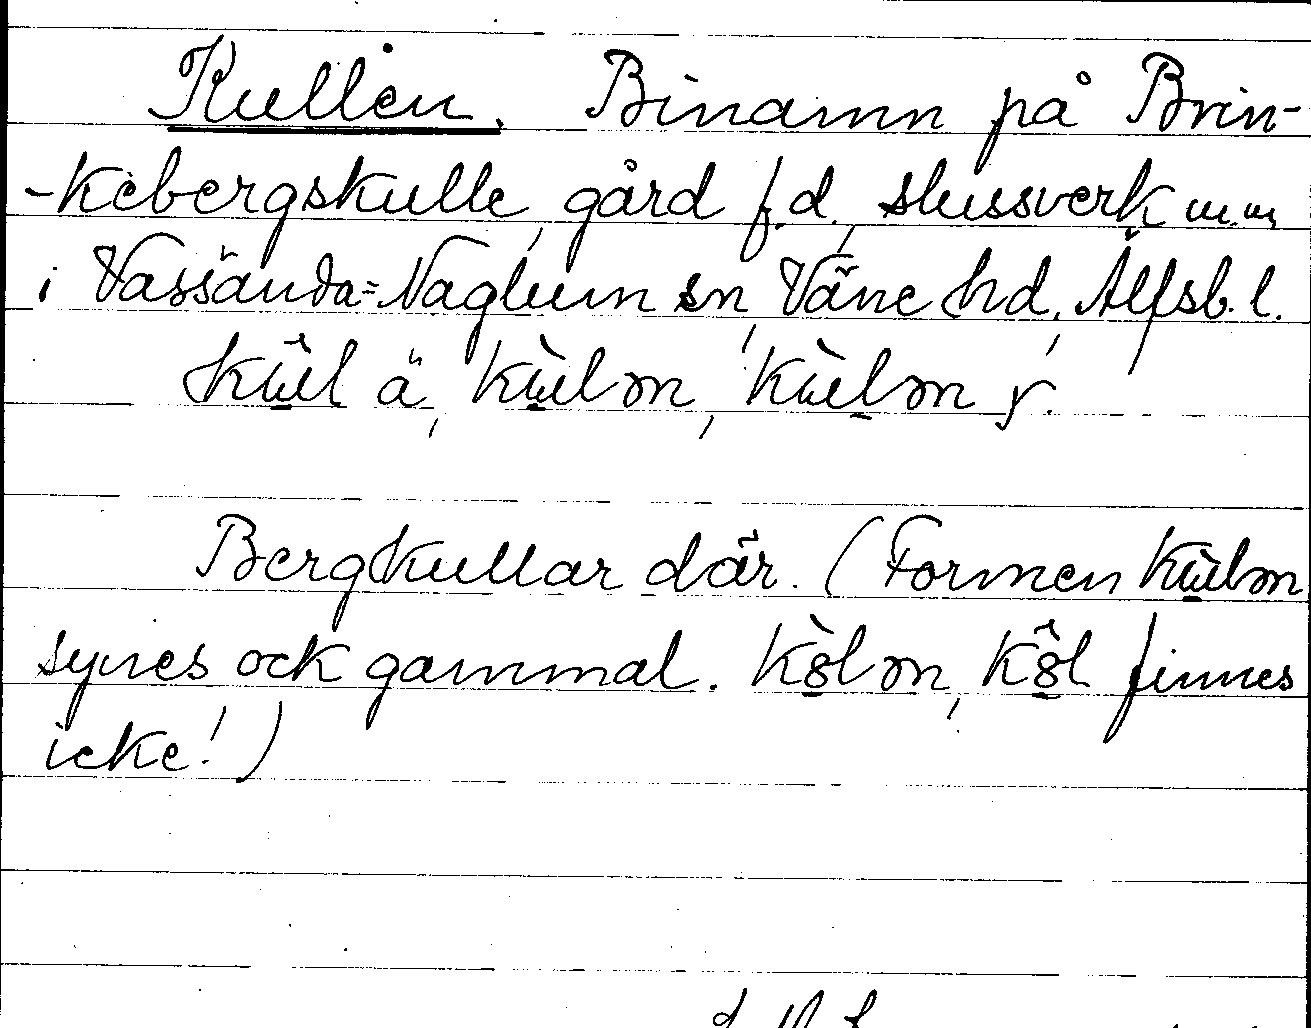 Kullen. Binamn på Brin-
-kebergskulle, gård, f.d. slussverk m.m.
i Vassända=Naglum sn, Väne hd, Älfsb. l.
kùl ä, kùlən, kùlən y.
Bergkullar där. (Formen kùlən
synes ock gammal. Kòlən, Kôl finnes
icke!)